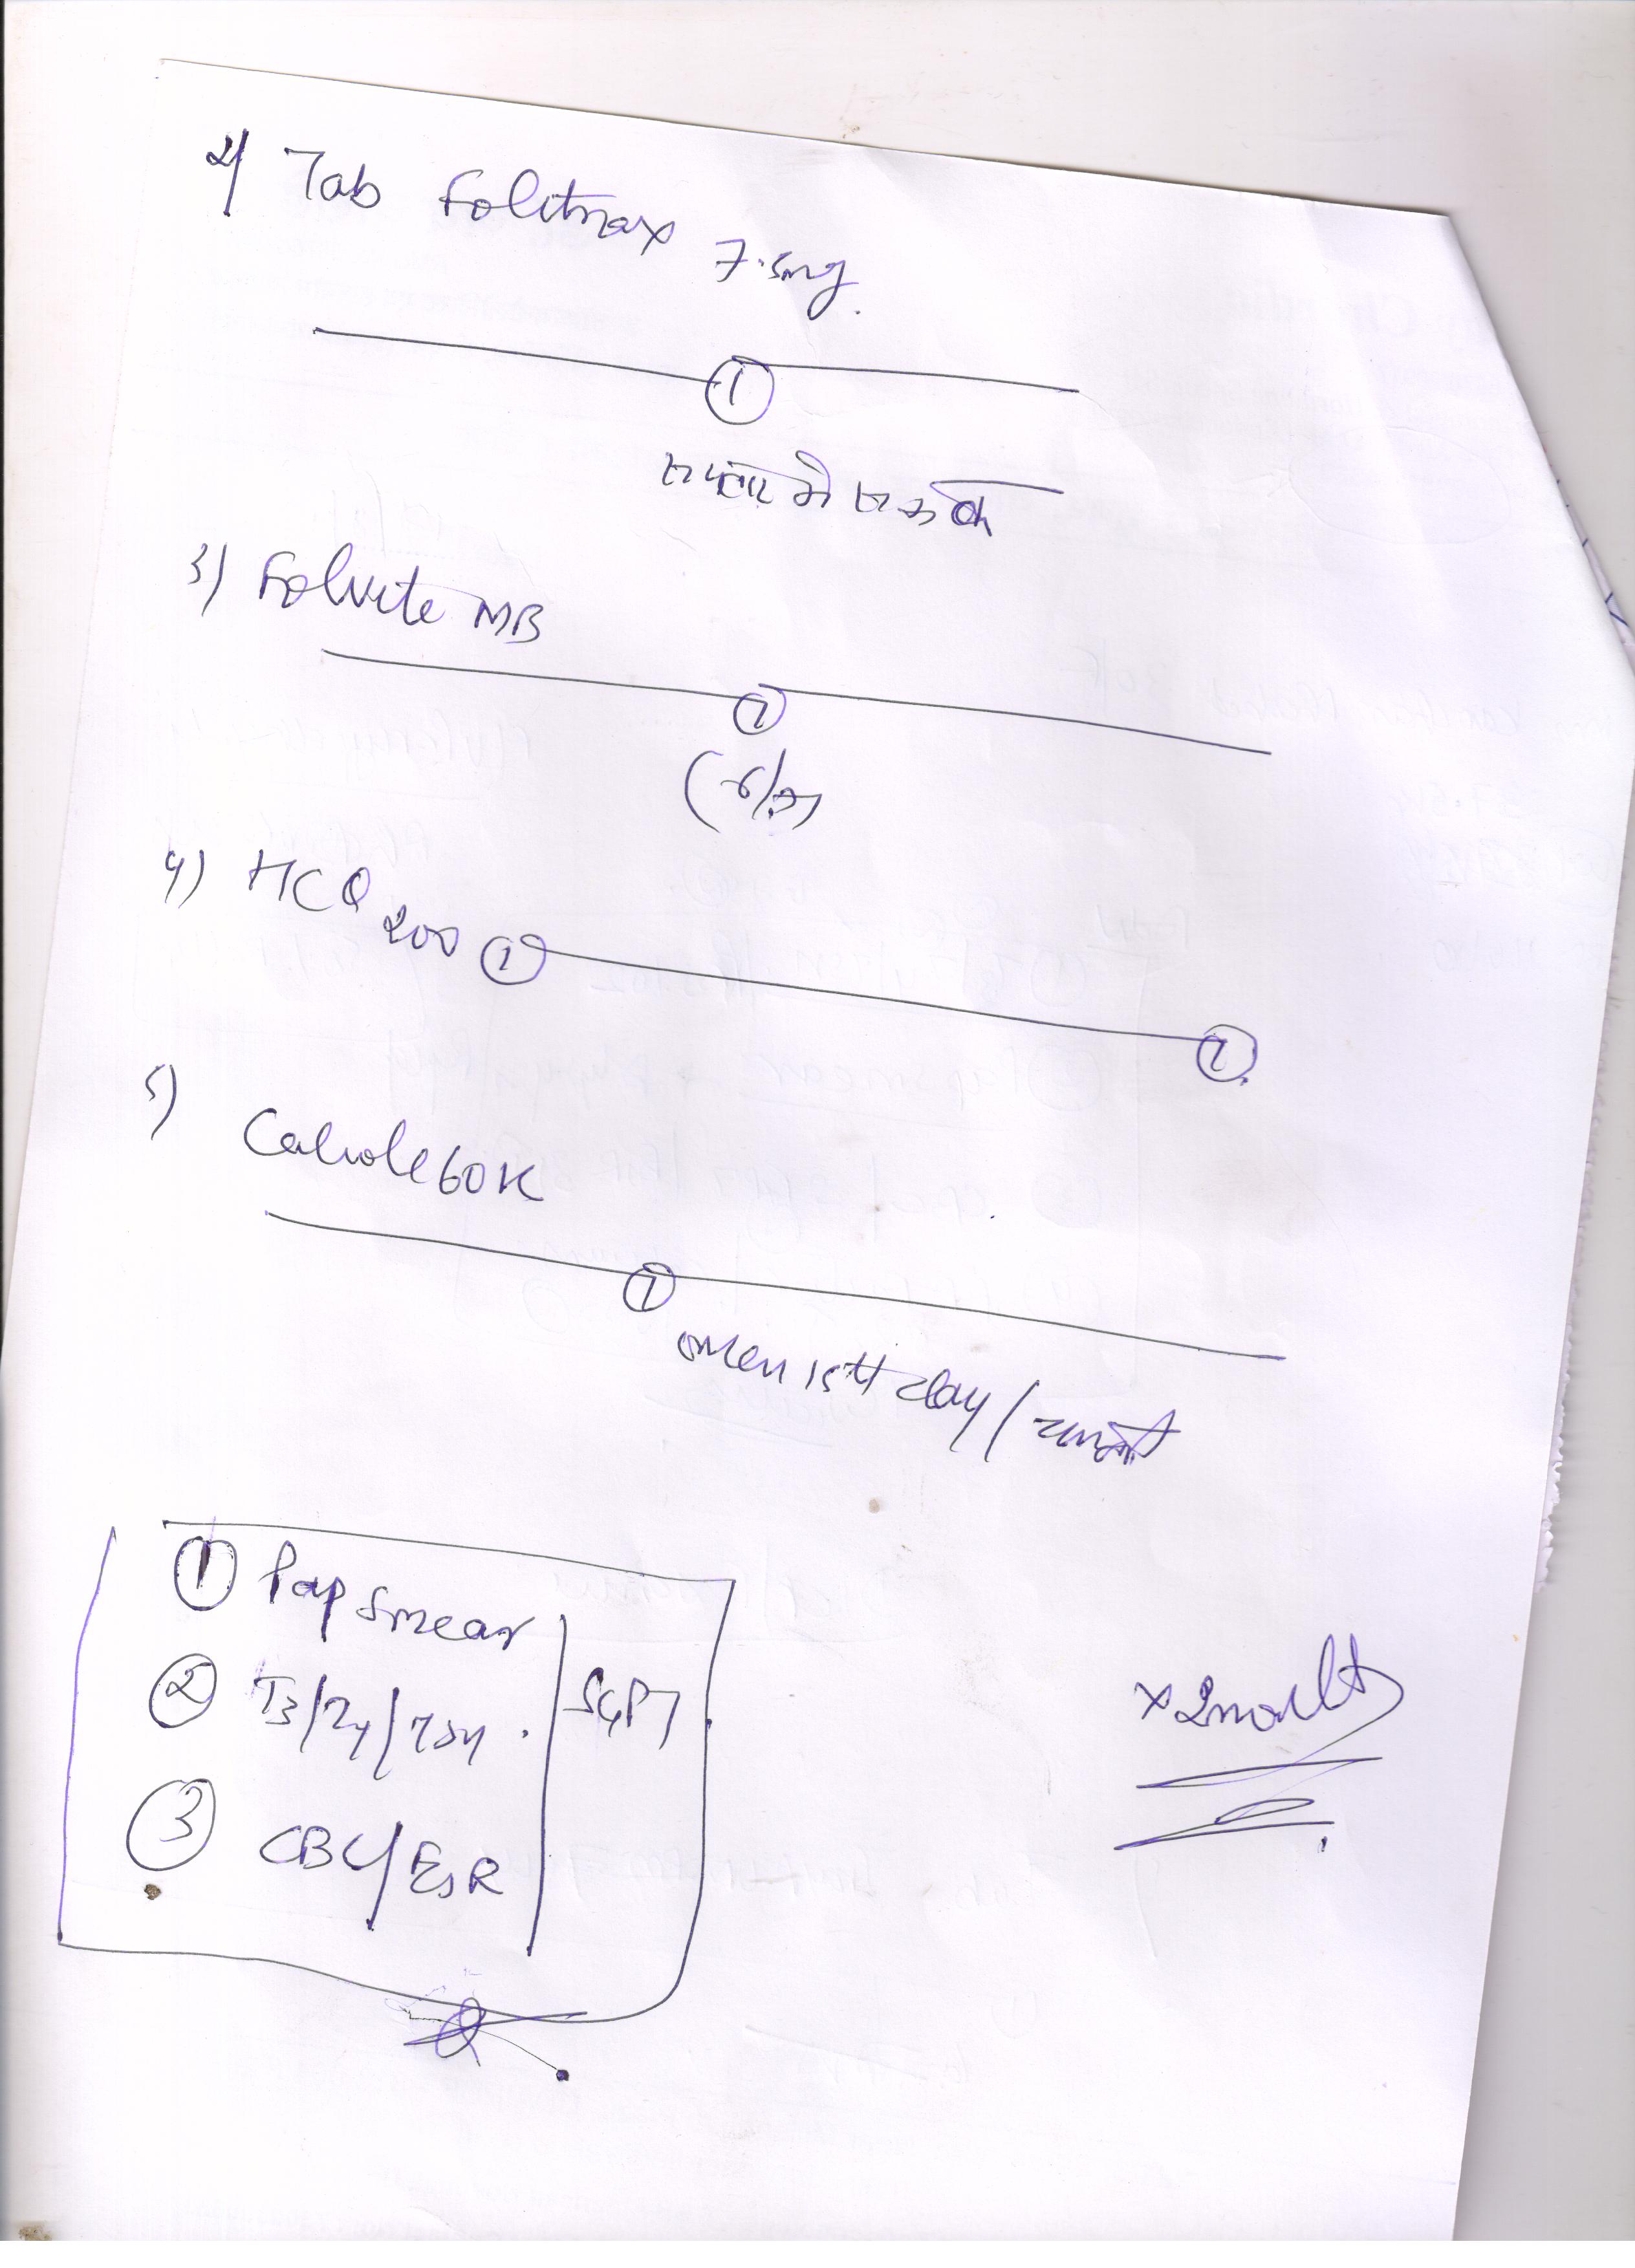 2) Tab Folitrax 7.5mg.
1
सप्ताह में एक बार
3) Folvite MB
1
4) HCQ 200 1 1
5)
60K
1
15th day /
① Pap smear
② T3/T4/TSH. SGPT
③ CBC/ESR
x 2 month